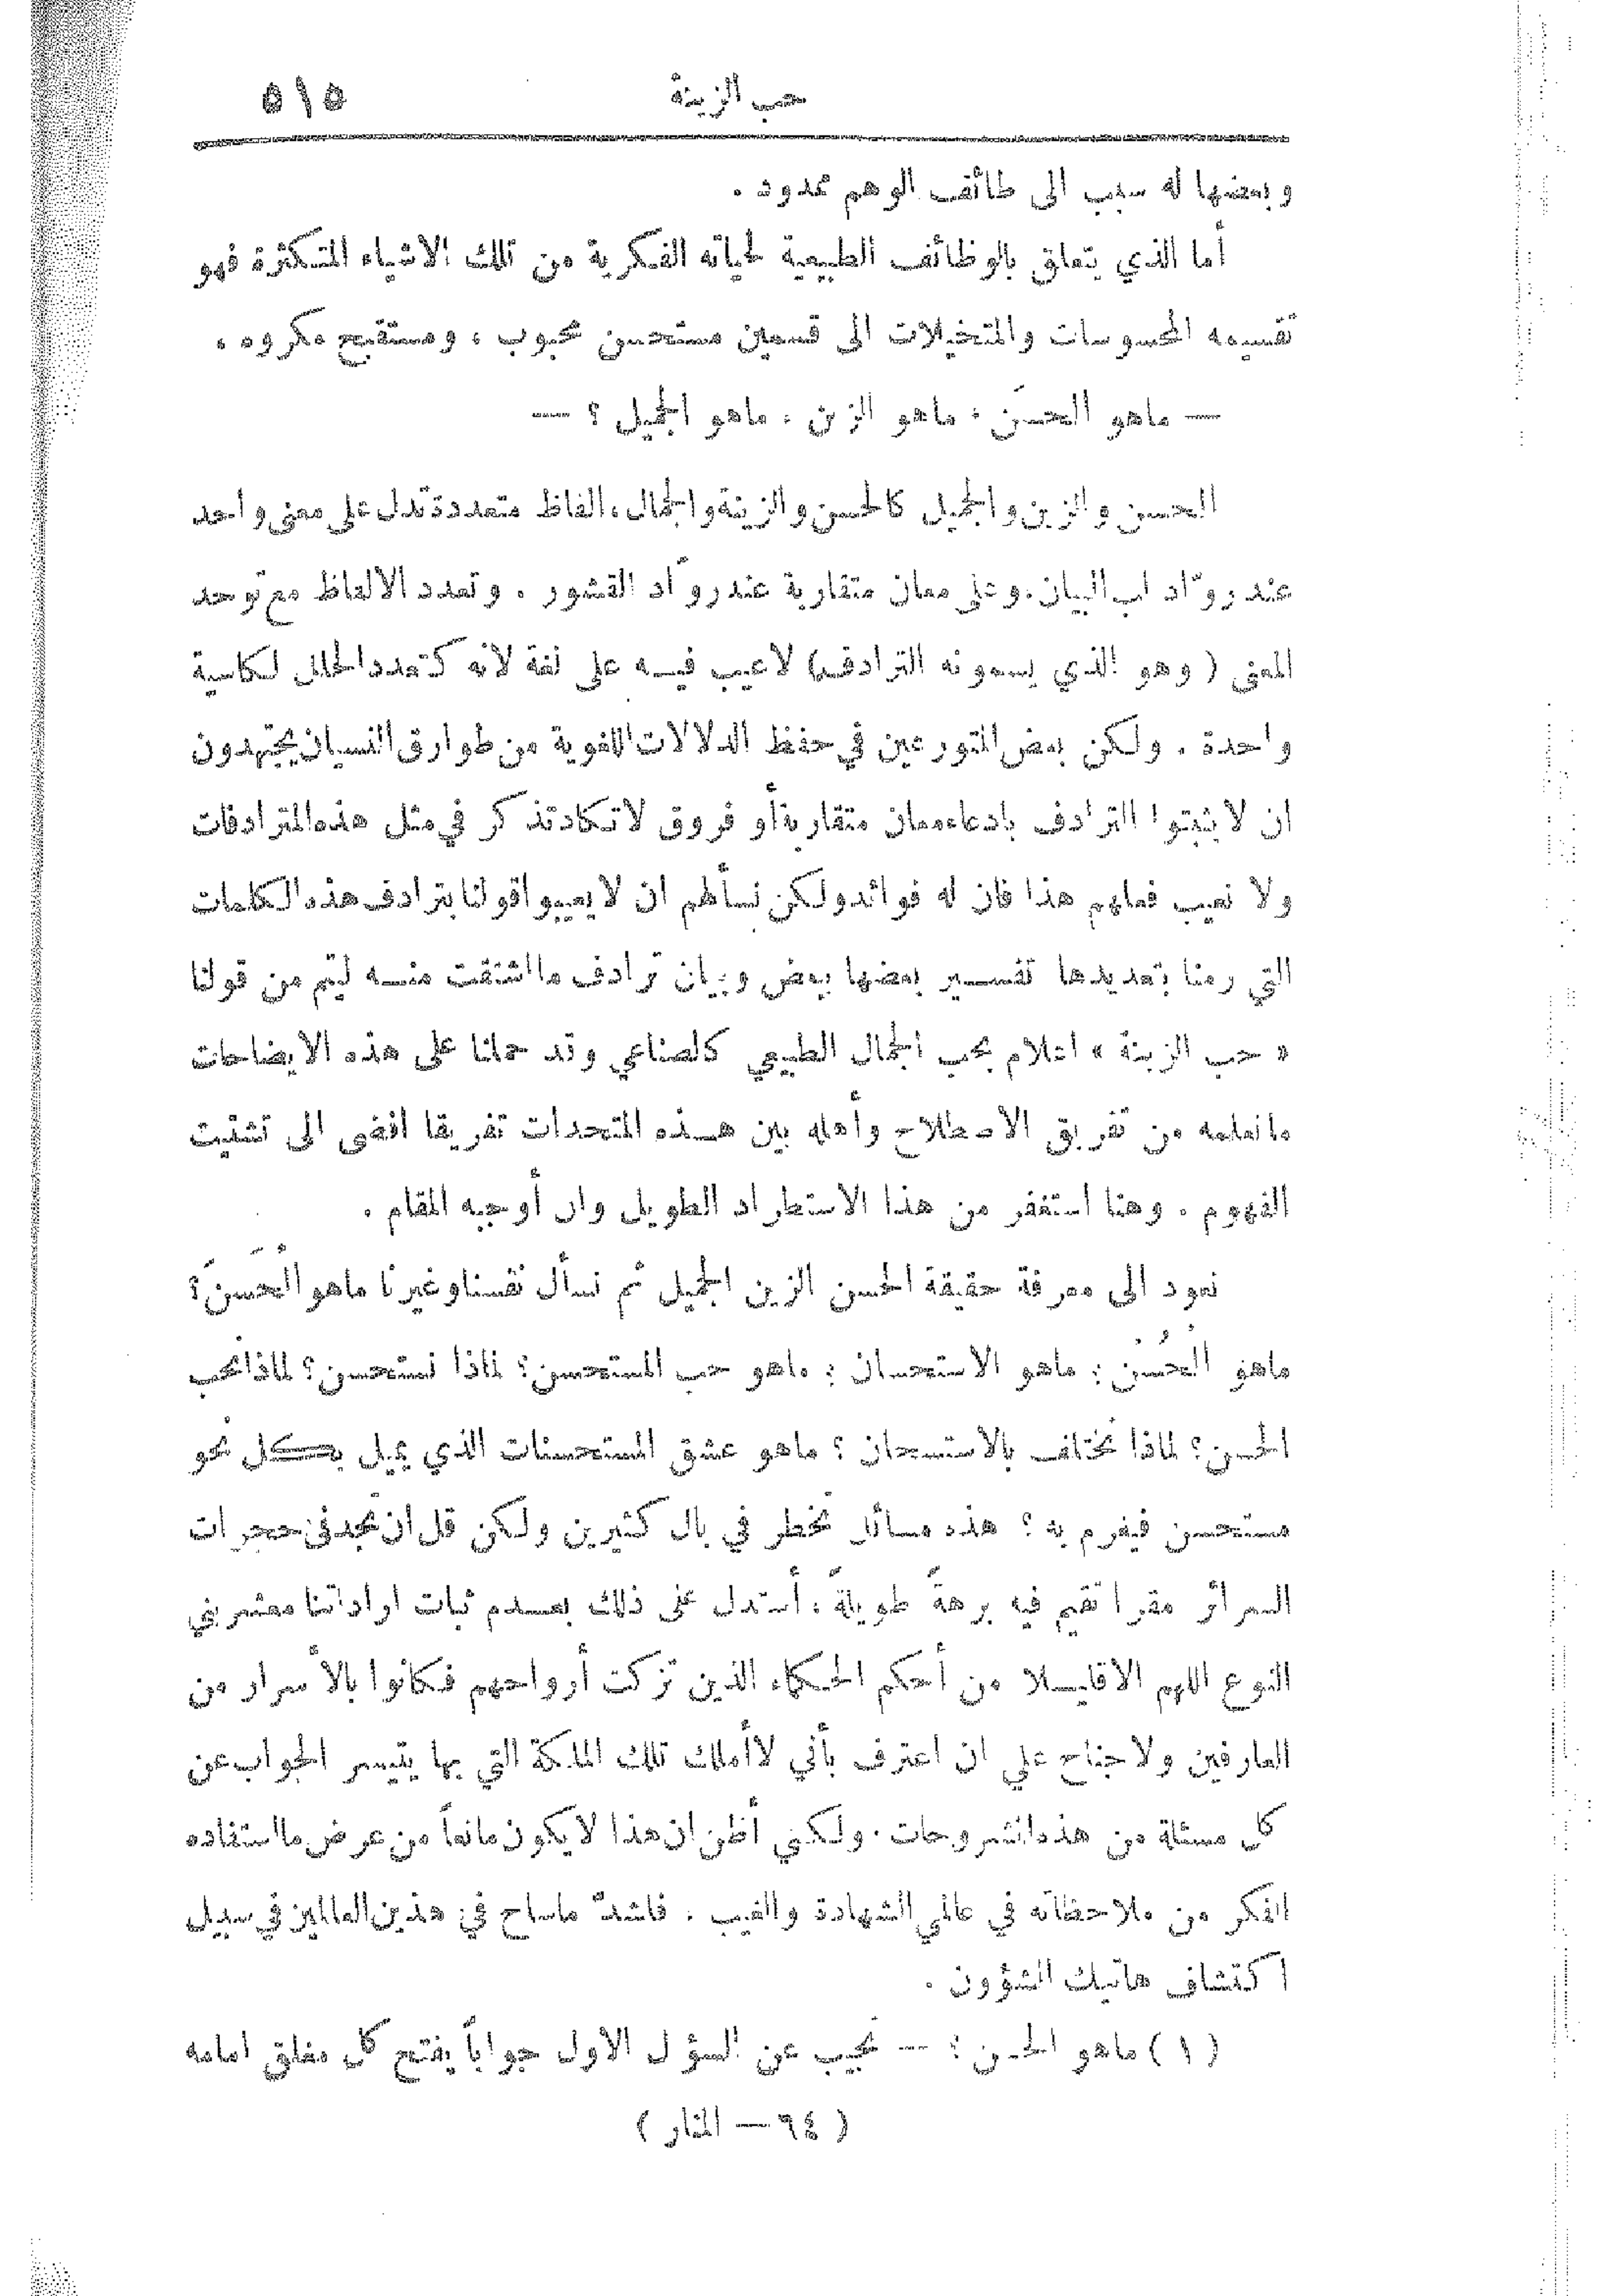 حب الزينة ٥١٥
وبعضها له سبب الى طائف الوهم ممدود .
أما الذي يتعلق بالوظائف الطبيعية لحياته الفكرية من تلك الاشياء المتكثرة فهو
تقسيمه المحسوسات والمتخيلات الى قسمين مستحسن محبوب ، ومستقبح مكروه ،
— ماهو الحسَن ؛ ماهو الزين ، ماهو الجميل ؟ —
الحسن والزين والجميل كالحسن والزينة والجمال ، الفاظ متعددة تدل على معنى واحد
عند روّاد لب البيان . وعلى معان متقاربة عند روّاد القشور . وتعدد الالفاظ مع توحد
المعنى ( وهو الذي يسمونه الترادف ) لاعيب فيه على لغة لانه كتعدد الحلل لكاسية
واحدة . ولكن بعض المتورعين في حفظ الدلالات اللغوية من طوارق النسيان يجتهدون
ان لا يثبتوا الترادف بادعاء معان متقاربة أو فروق لا تكاد تذكر في مثل هذه المترادفات
ولا نعيب فعلهم هذا فان له فوائد ولكن نسألهم ان لا يعيبوا قولنا بترادف هذه الكلمات
التي رمنا بتعديدها تفسير بعضها ببعض وبيان ترادف ما اشتقت منه ليتم من قولنا
« حب الزينة » اعلام بحب الجمال الطبيعي كالصناعي وقد حملنا على هذه الايضاحات
مانعلمه من تفريق الاصطلاح وأهله بين هذه المتحدات تفريقا افضى الى تشتيت
الفهوم . وهنا استغفر من هذا الاستطراد الطويل وان أوجبه المقام .
نعود الى معرفة حقيقة الحسن الزين الجميل ثم نسأل نفسنا وغيرنا ماهو الحَسَنُ ؟
ماهو الحُسْن ؛ ماهو الاستحسان ؛ ماهو حب المستحسن ؛ لماذا نستحسن ؟ لماذا نحب
الحسن ؟ لماذا نختلف بالاستسحان ؟ ماهو عشق المستحسنات الذي يميل بكل نحو
مستحسن فيغرم به ؟ هذه مسائل تخطر في بال كثيرين ولكن قل ان تجد في حجرات
السرائر مقرا تقيم فيه برهةً طويلةً ، أستدل على ذلك بعدم ثبات اراداتنا معشر بني
النوع اللهم الا قليلا من أحكم الحكماء الذين تزكت أرواحهم فكانوا بالأسرار من
العارفين ولا جناح علي ان اعترف بأني لا أملك تلك الملكة التي بها يتيسر الجواب عن
كل مسئلة من هذه المشروحات . ولكني أظن ان هذا لا يكون مانعاً من عرض ما استفاده
الفكر من ملاحظاته في عالمي الشهادة والغيب . فاشدّ ماساح في هذين العالمين في سبيل
اكتشاف هاتيك الشؤون .
( ١ ) ماهو الحسن ؛ — نجيب عن السؤل الاول جواباً يفتح كل مغلق امامه
( ٦٤ — المنار )